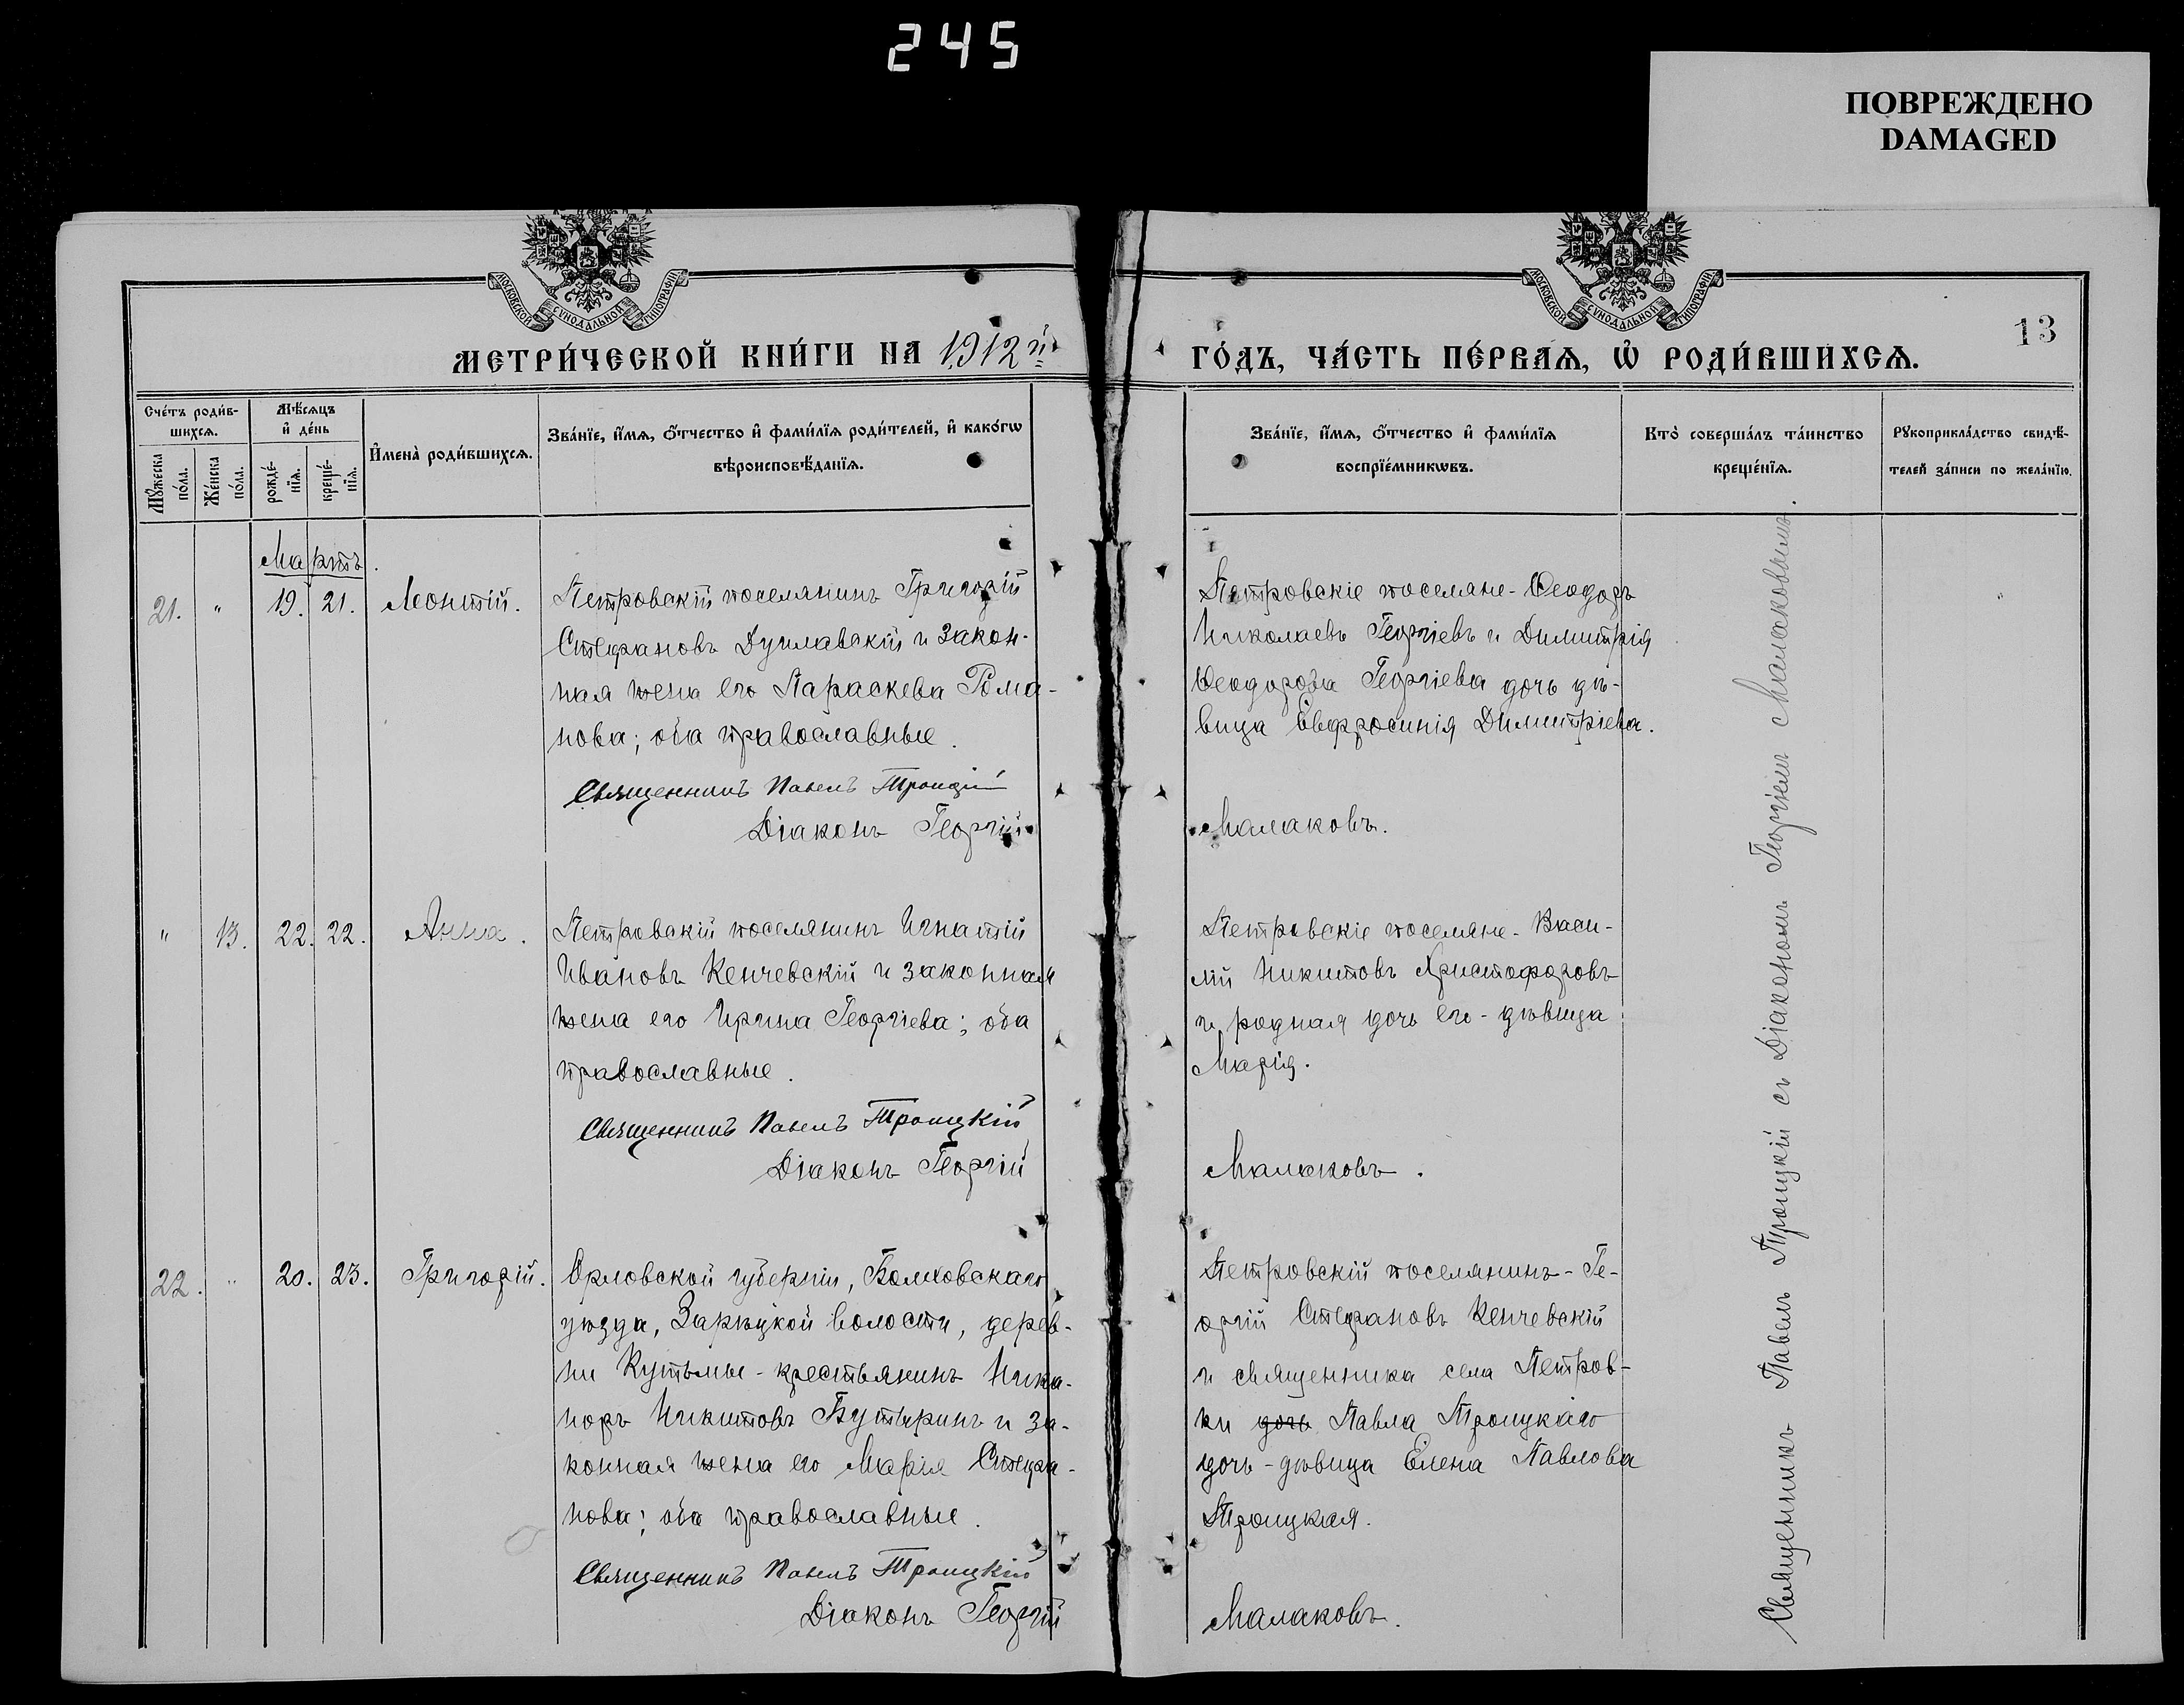 245
ПОВРЕЖДЕНО
DAMAGED
МОСКОВСКОЙ СѴНОДАЛЬНОЙ ТИПОГРАФІИ
МОСКОВСКОЙ СѴНОДАЛЬНОЙ ТИПОГРАФІИ
13
МЕТРИ́ЧЕСКОЙ КНИ́ГИ НА 1912й
ГО́ДЪ, ЧА́СТЬ ПЕ́РВАѦ, Ѡ҆ РОДИ́ВШИХСѦ.
Сче́тъ роди́в-
шихсѧ.
Мꙋ́жеска по́ла.
Же́нска по́ла.
Мѣ́сѧцъ
и҆ де́нь
рожде́-
нїѧ.
креще́-
нїѧ.
И҆мена̀ роди́вшихсѧ.
Зва́нїе, и҆́мѧ, ѻ҆́тчество и҆ фами́лїѧ роди́телей, и҆ како́гѡ
вѣроисповѣ́данїѧ.
Зва́нїе, и҆́мѧ, ѻ҆́тчество и҆ фами́лїѧ
воспрїе́мникѡвъ.
Кто̀ соверша́лъ та́инство
креще́нїѧ.
Рꙋкоприкла́дство свидѣ́-
телей за́писи по жела́нїю.
Мартъ.
21. " 19. 21. Леонтій.
Петровскій поселянинъ Григорій
Стефановъ Дуплавскій и закон-
ная жена его Параскева Рома-
нова; оба православные.
Священникъ Павелъ Троицкій
Діаконъ Георгій
Петровскіе поселяне - Ѳеодоръ
Николаевъ Георгіевъ и Димитрія
Ѳеодорова Георгіева дочь дѣ-
вица Евфросинія Димитріева.
Малаковъ.
"
" 13. 22. 22. Анна.
Петровскій поселянинъ Игнатій
Ивановъ Кенчевскій и законная
жена его Ирина Георгіева; оба
православные.
Священникъ Павелъ Троицкій
Діаконъ Георгій
Петровскіе поселяне - Васи-
лій Никитовъ Христофоровъ
и родная дочь его - дѣвица
Марія.
Малаковъ.
22. " 20. 23. Григорій.
Орловской губерніи, Болховскаго
уѣзда, Зарѣцкой волости, дерев-
ни Кутьмы - крестьянинъ Ника-
норъ Никитовъ Бутыринъ и за-
конная жена его Марія Стефа-
нова; оба православные.
Священникъ Павелъ Троицкій
Діаконъ Георгій
Петровскій поселянинъ - Ге-
оргій Стефановъ Кенчевскій
и священника села Петров-
ки дочь Павла Троицкаго
дочь - дѣвица Елена Павлова
Троицкая.
Малаковъ.
Священникъ Павелъ Троицкій съ Діакономъ Георгіемъ Малаковымъ.